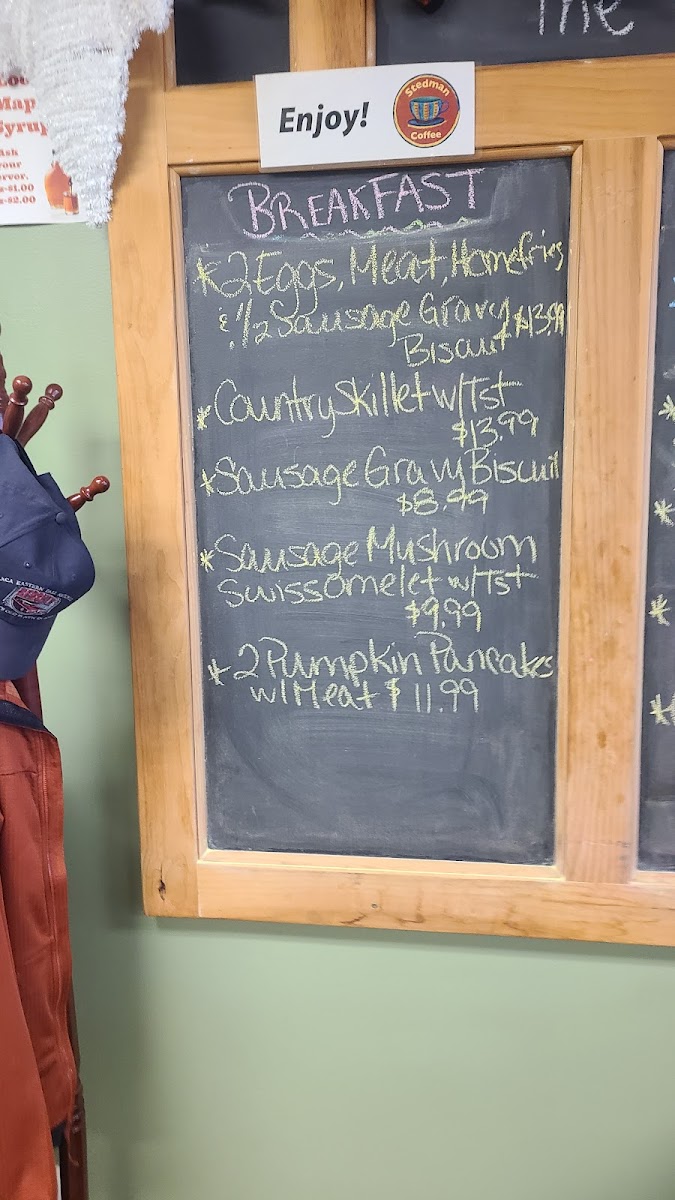 The
Enjoy!
Stedman
Coffee
Map
Syrup
Ask
your
BREAKFAST
* 2 Eggs, Meat, Homefries
& 1/2 Sausage Gravy $13.99
Biscuit
* Country Skillet w/Tst
$13.99
* Sausage Gravy Biscuit
$8.99
* Sausage Mushroom
Swiss omelet w/Tst
$9.99
* 2 Pumpkin Pancakes
w/ Meat $11.99